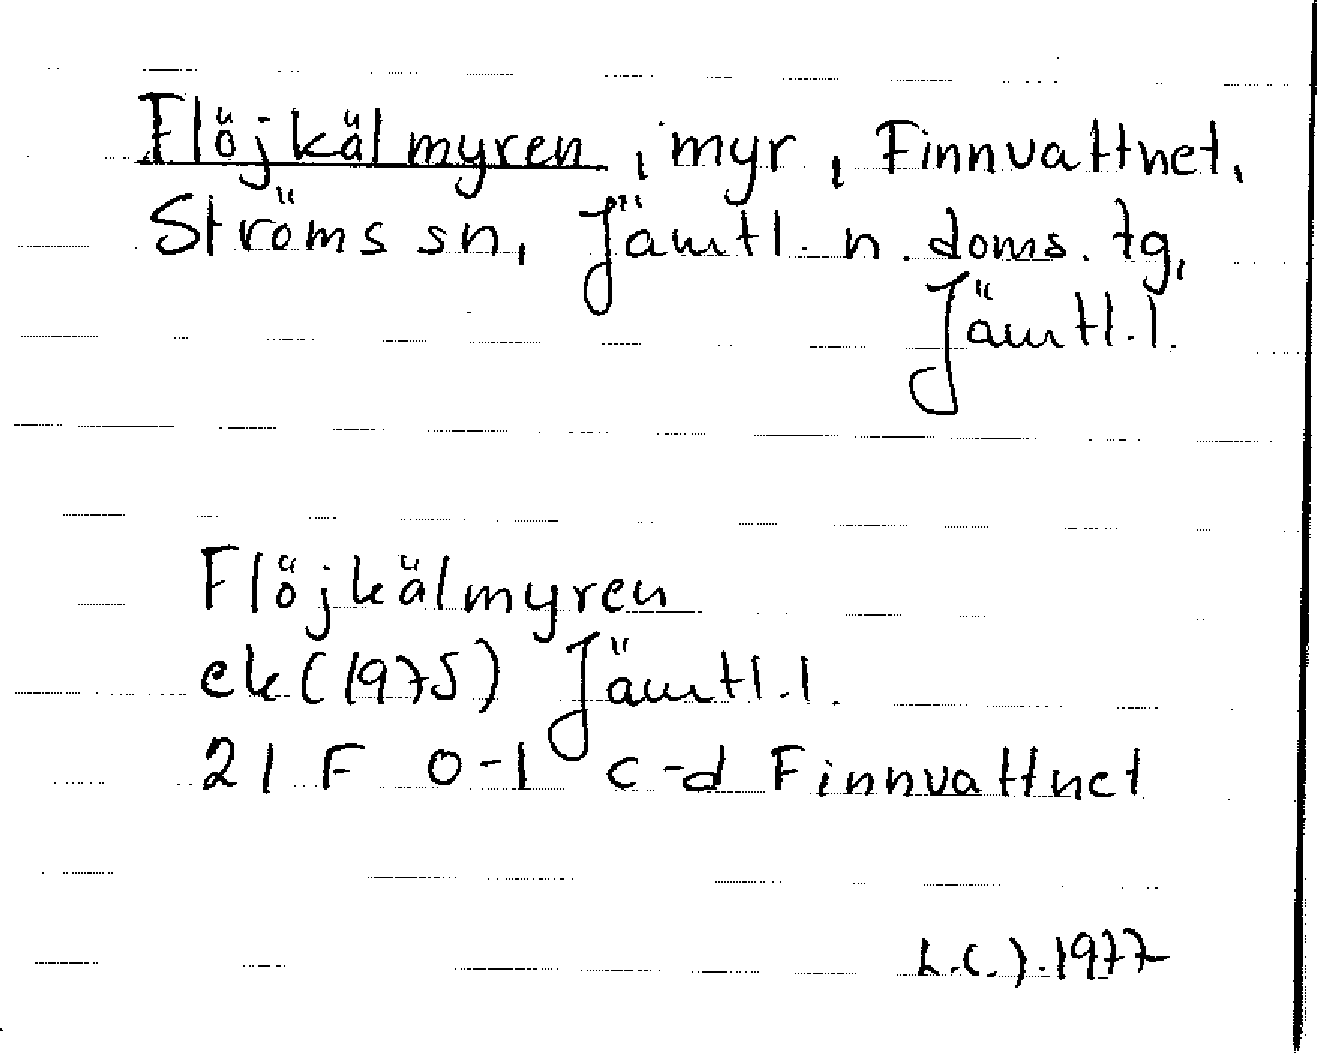 Flöjkälmyren, myr, Finnvattnet,
Ströms sn, Jämtl. n. doms. tg,
Jämtl. l.
Flöjkälmyren
ek (1975) Jämtl. l.
21 F 0-1 c-d Finnvattnet
1977